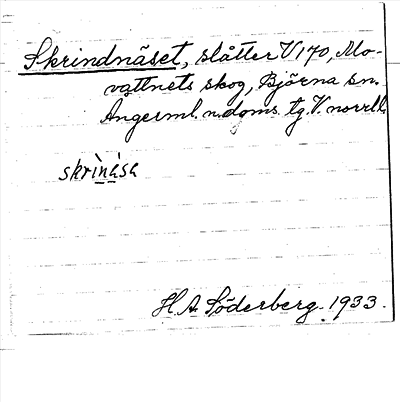 Skrindnäset, slåtter V 170, Mo-
vattnets skog, Björna sn.
Ångerml. n. doms. tg. V. norrl.
skrìnása
H. A. Söderberg. 1933.